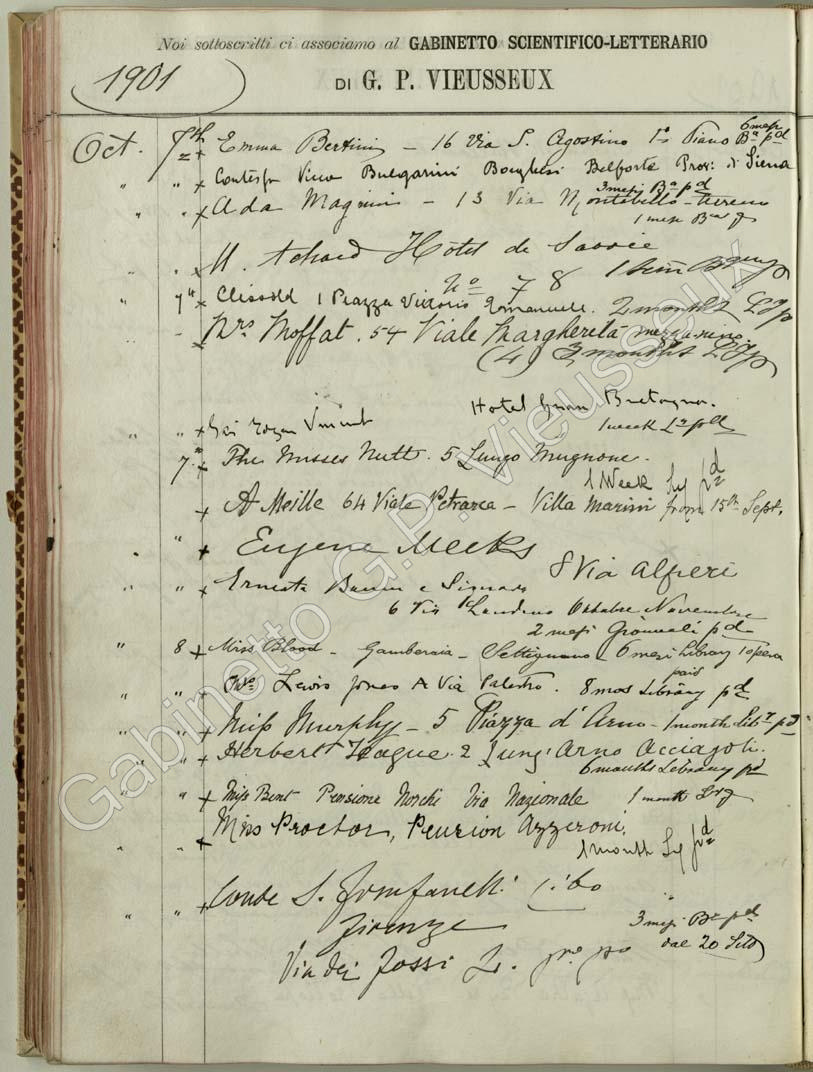 Noi sottoscritti ci associamo al GABINETTO SCIENTIFICO-LETTERARIO
1901
DI G. P. VIEUSSEUX
Oct. 7th x Emma Bertini - 16 Via S. Agostino 1° Piano 6 mesi Ba pd
" " x Contessa Bulgarini Borghesi Belforte Prov: di Siena
3 mesi Ba pd
" " x Ada Magnini - 13 Via Montebello - terreno
1 mese
" " x Achard Hôtel de Savoie
No 78
" 7th x Clissold 1 Piazza Vittorio Emanuele. 2 months
Mrs Moffat. 54 Viale Margherita mezzanino
(4) 3 months
Hotel Gran Bretagna.
" " x Vincent 1 week pd
7th x The Misses Nutt. 5 Lungo Mugnone.
1 Week Ly pd
x A Meille 64 Viale Petrarca - Villa Marini from 15th Sept.
" " x Eugene Meeks
8 Via Alfieri
" " x Ernesta e Signora
6 Via Landino Ottobre Novembre
2 mesi Giornali pd
" 8 x Miss Blood - Gamberaia - Settignano - 6 mesi Library 1 opera
paid
" " x Lewis Jones A Via Palestro. 8 mos Library pd
" " x Miss Murphy - 5 Piazza d'Arno - 1 month Liby pd
" " x Herbert Teague 2 Lung' Arno Acciajoli.
6 months Library pd
" " x Miss Bent Pensione Via Nazionale 1 month
" " x Miss Proctor, Pension Azzeroni.
1 month Ly pd
" " x Conde S. Cibo
Firenze
3 mesi Ba pd
dal 20
Via dei Fossi
Gabinetto G.P. Vieusseux